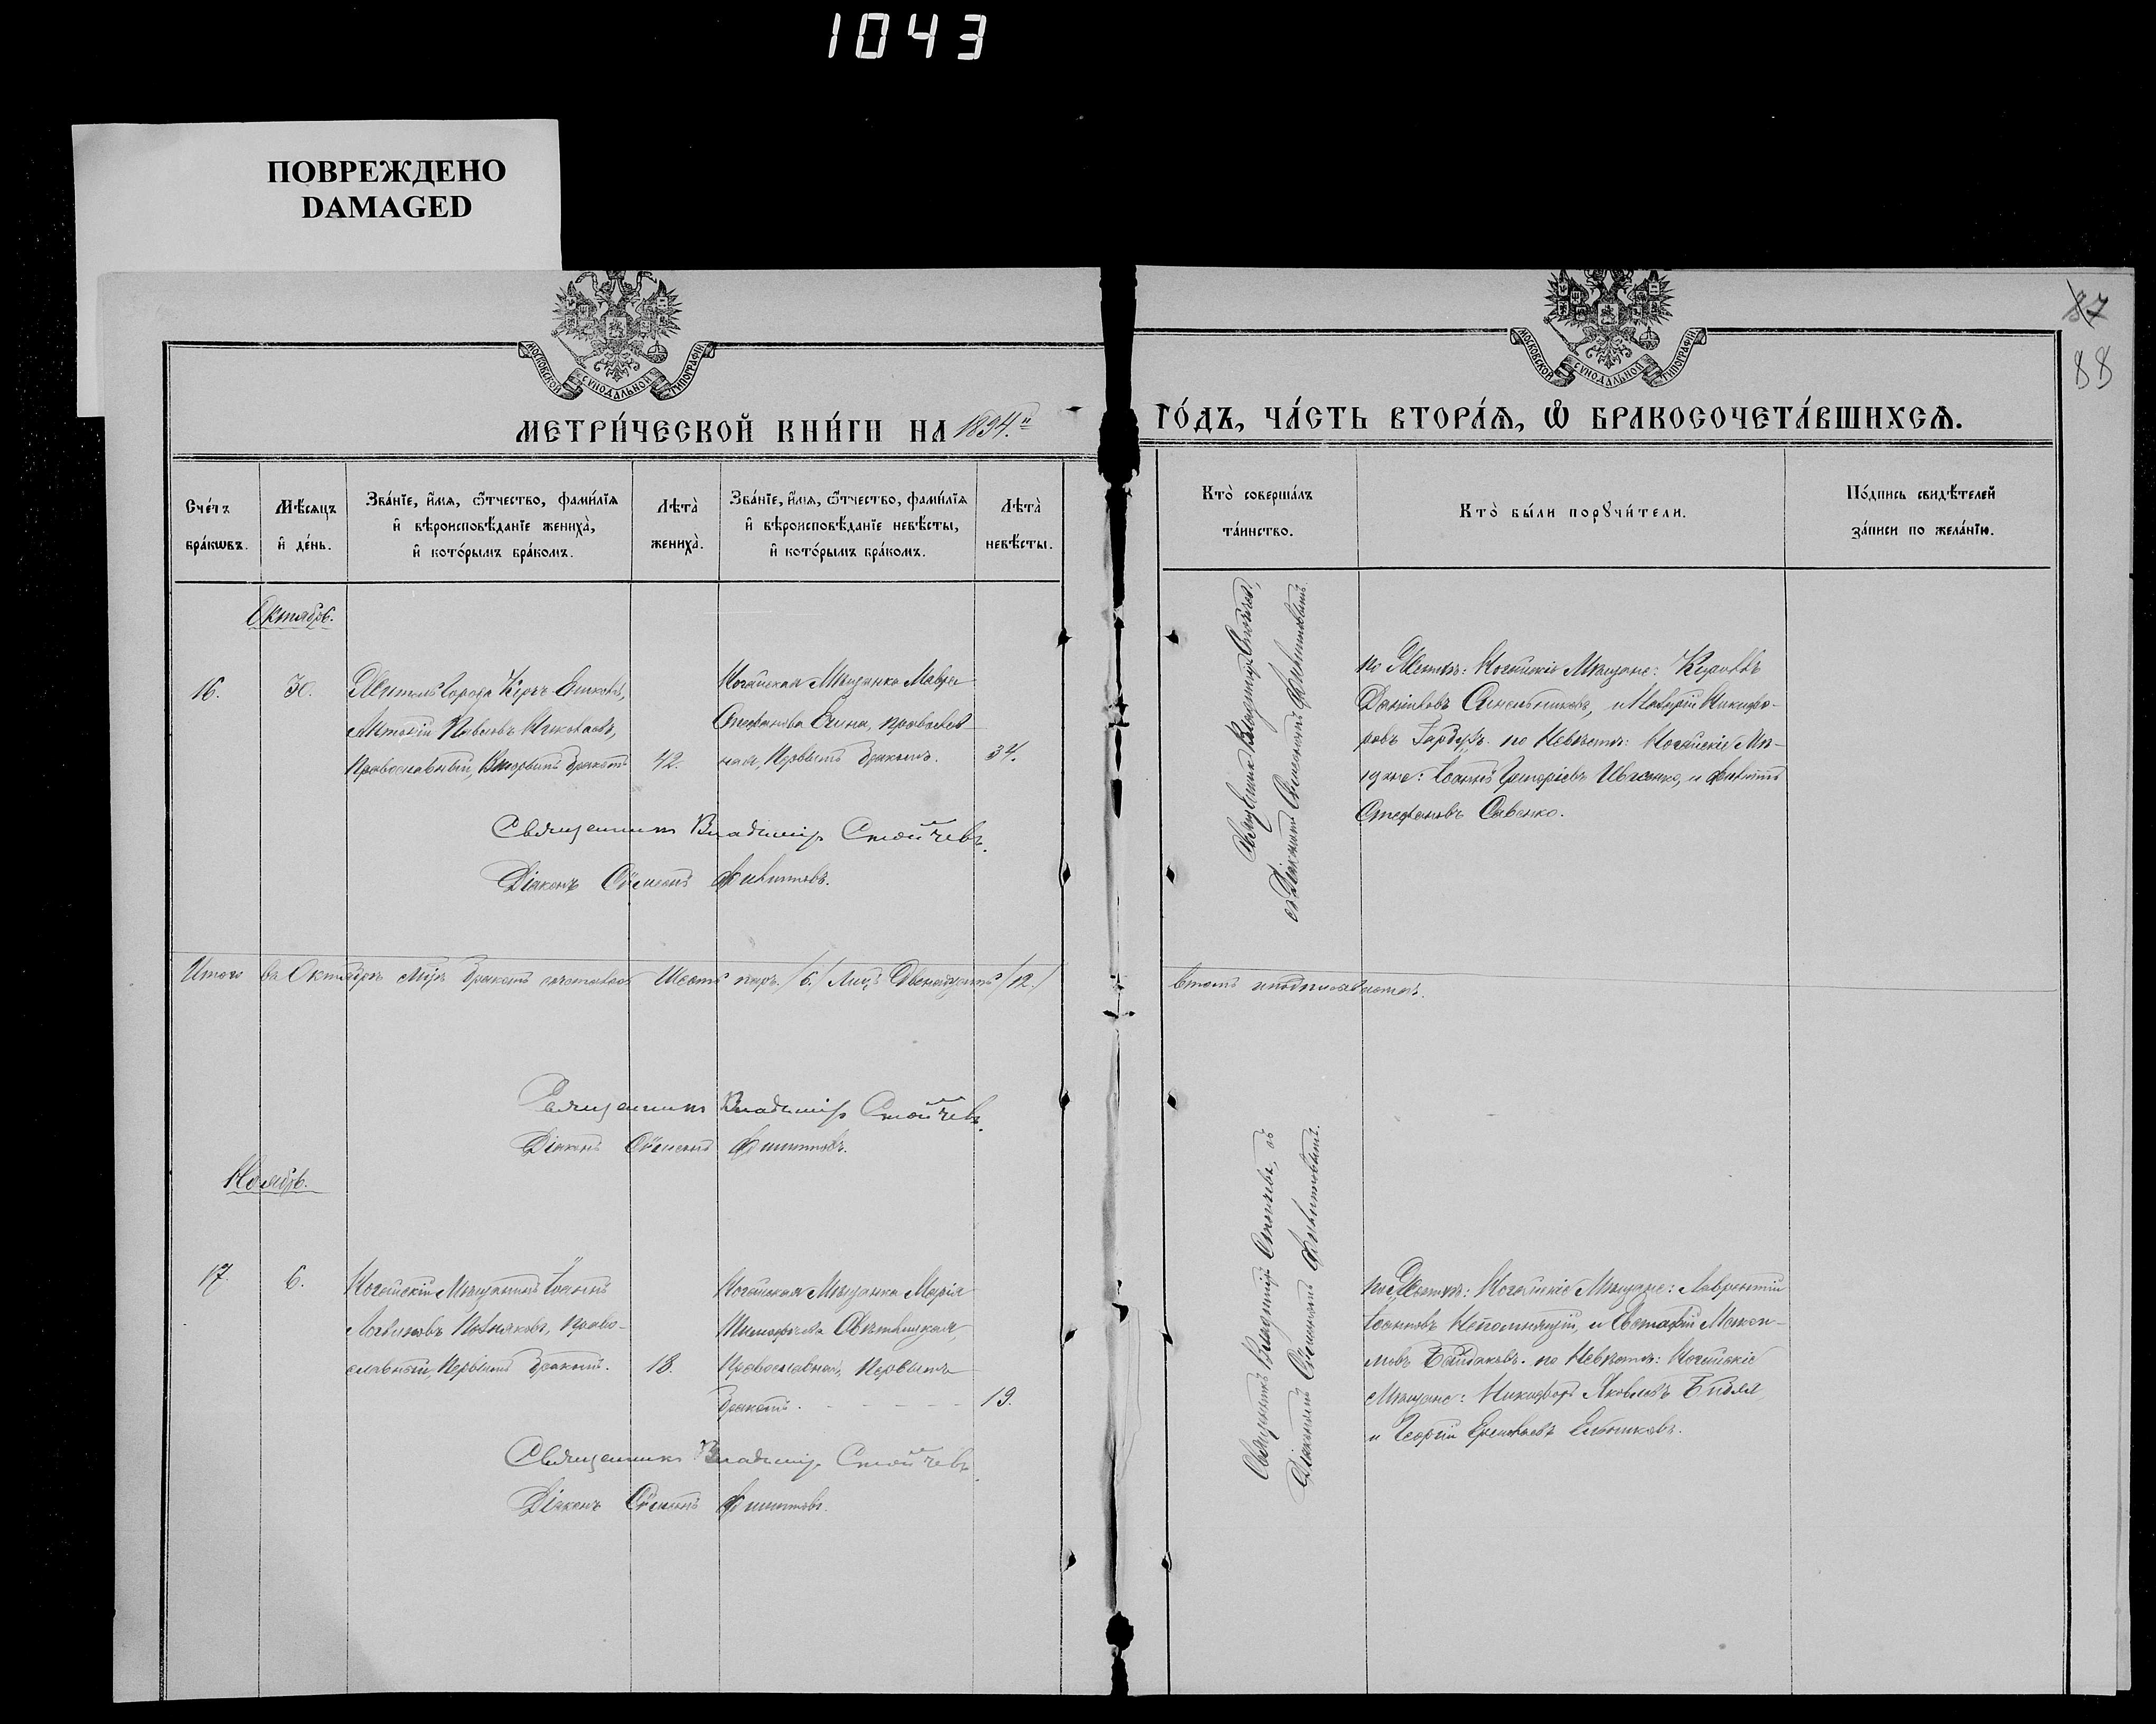 1043
ПОВРЕЖДЕНО
DAMAGED
МОСКОВСКОЙ СУНОДАЛЬНОЙ ТИПОГРАФІИ
МОСКОВСКОЙ СУНОДАЛЬНОЙ ТИПОГРАФІИ
87
88
МЕТРИ́ЧЕСКОЙ КНИ́ГИ НА 1894.й
ГО́ДЪ, ЧА́СТЬ ВТОРА́Я, Ѡ҆ БРАКОСОЧЕТА́ВШИХСЯ.
Сче́тъ
бра́кѡвъ.
Мѣ́сяцъ
и҆ де́нь.
Зва́нїе, и҆́мя, ѻ҆́тчество, фами́лїя
и҆ вѣроисповѣ́данїе жениха̀,
и҆ кото́рымъ бра́комъ.
Лѣта̀
жениха̀.
Зва́нїе, и҆́мя, ѻ҆́тчество, фами́лїя
и҆ вѣроисповѣ́данїе невѣ́сты,
и҆ кото́рымъ бра́комъ.
Лѣта̀
невѣ́сты.
Кто̀ соверша́лъ
та́инство.
Кто̀ бы́ли порꙋчи́тели.
По́дпись свидѣ́телей
за́писи по жела́нїю.
Октябрь.
16.
30.
Житель города Керчь Еникале,
Антоній Павловъ Николаевъ,
Православный, Вторымъ бракомъ
42.
Ногайская Мѣщанка Мавра
Стефанова православ-
ная, Первымъ бракомъ.
34.
Священникъ Владиміръ Стойчевъ,
съ Діакономъ Симеономъ Филипповымъ.
по Женихѣ: Ногайскіе Мѣщане: Кириллъ
Даніиловъ Синельниковъ, и Никифо-
ровъ по Невѣстѣ: Ногайскіе Мѣ-
щане: Іоаннъ Григоріевъ Ивченко, и Филиппъ
Стефановъ Савенко.
Священникъ Владиміръ Стойчевъ.
Діаконъ Сѵмеонъ Филипповъ.
Итого въ Октябрѣ м-цѣ бракомъ сочеталось Шесть паръ /6./ Лицъ Двенадцать /12./
Втомъ иподписываемся.
Священникъ Владиміръ Стойчевъ.
Діаконъ Сѵмеонъ Филипповъ.
Ноябрь.
17.
6.
Ногайскій Мѣщанинъ Іоаннъ
Логвиновъ право-
славный, Первымъ бракомъ.
18.
Ногайская Мѣщанка Марія
Тимофеева
Православная, Первымъ
бракомъ.
19.
Священникъ Владиміръ Стойчевъ, съ
Діакономъ Сѵмеономъ Филипповымъ.
по Женихѣ: Ногайскіе Мѣщане: Лаврентій
Іоанновъ Непомнящій, и Евстафій
Байдаковъ. по Невѣстѣ: Ногайскіе
Мѣщане: Никифоръ Яковлевъ
и Георгій
Священникъ Владиміръ Стойчевъ.
Діаконъ Сѵмеонъ Филипповъ.